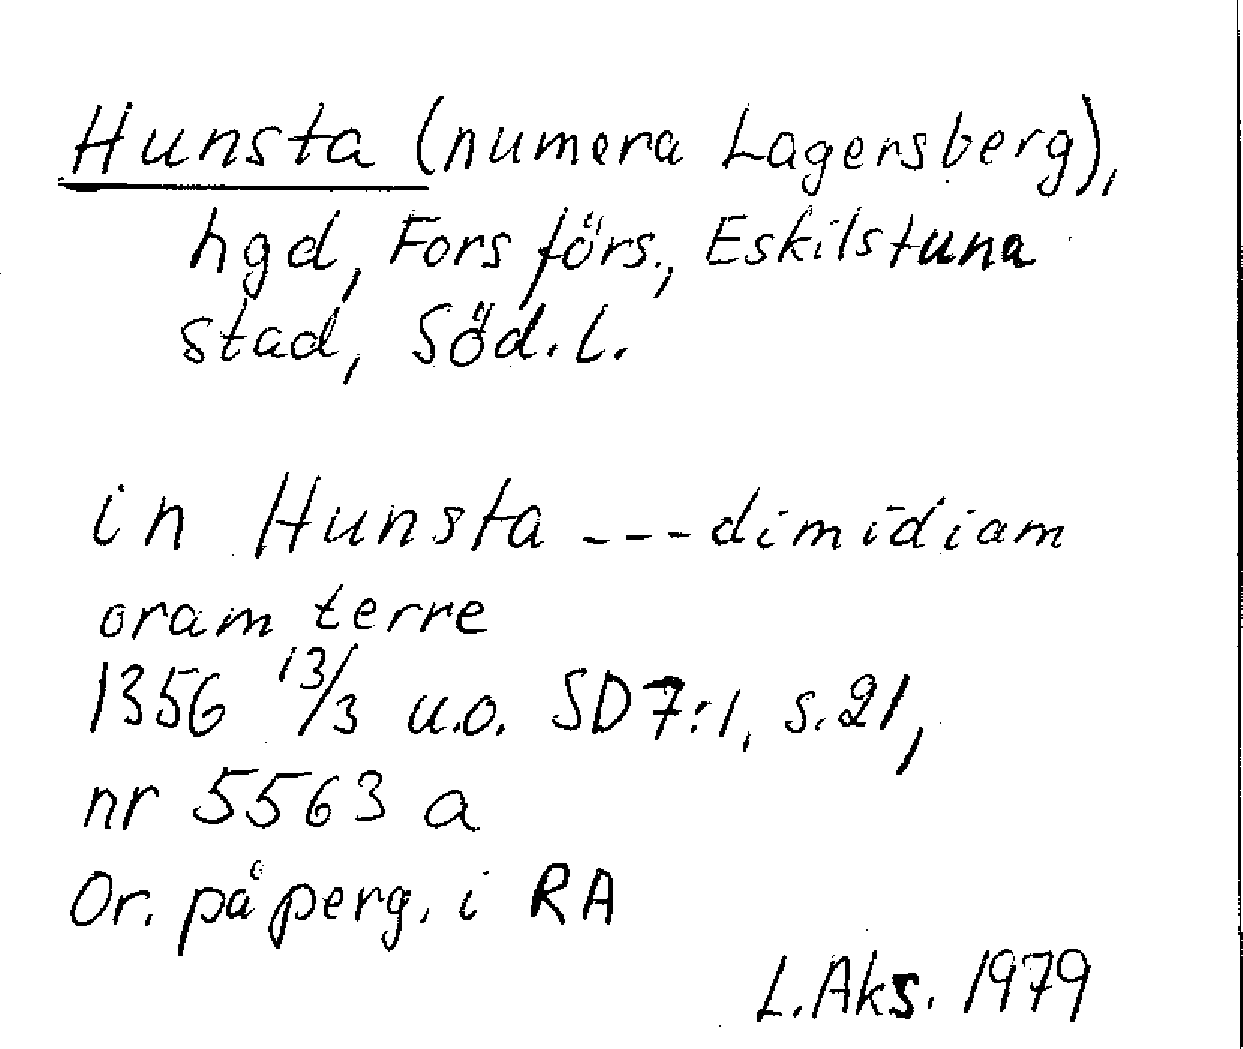 Hunsta (numera Lagersberg),
hgd, Fors förs., Eskilstuna
stad, Söd. L.
in Hunsta --- dimidiam
oram terre
1356 13/3 u.o. SD7:1, s. 21,
nr 5563 a
Or. på perg. i RA
L. Aks. 1979